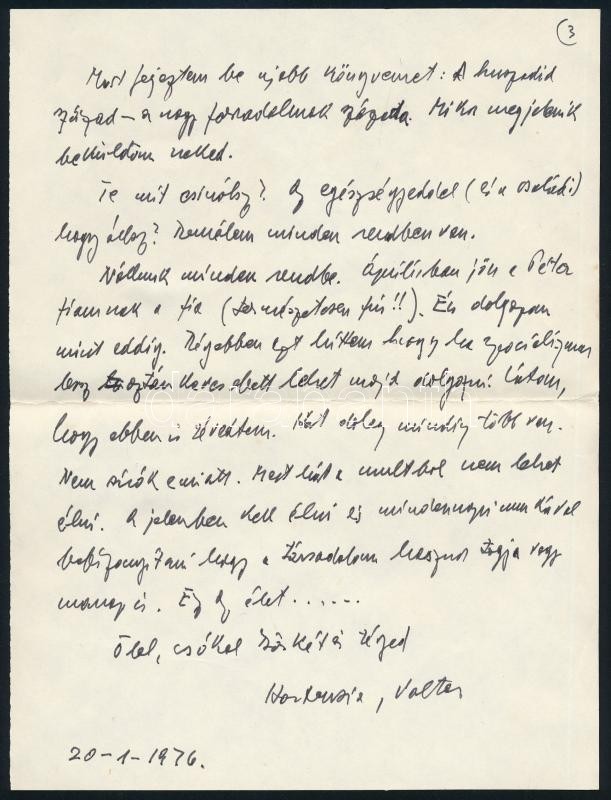 3
Most fejeztem be ujabb könyvemet: A huszadik
század – a nagy forradalmak százada. Mikor megjelenik
beküldöm neked.
Te mit csinálsz? Az egészségeddel (és a családi)
hogy állsz? Remélem minden rendben van.
Nállunk minden rendbe. Áprilisban jön a Péter
fiamnak a fia (természetesen fiú!!). Én dolgozom
mint eddig. Régebben azt hittem hogy ha szocializmus
lesz aztán kevesebbet lehet majd dolgozni. Látom,
hogy ebben is tévedtem. Mert dolog mindig több van.
Nem sírok emiatt. Mert hát a multbol nem lehet
élni. A jelenben kell élni és mindennapi munkával
bebizonyitani hogy a társadalom hasznos tagja vagy
manap is. Ez az élet......
Ölel, csókol Téged
Hortenzia, Valter
20-1-1976.